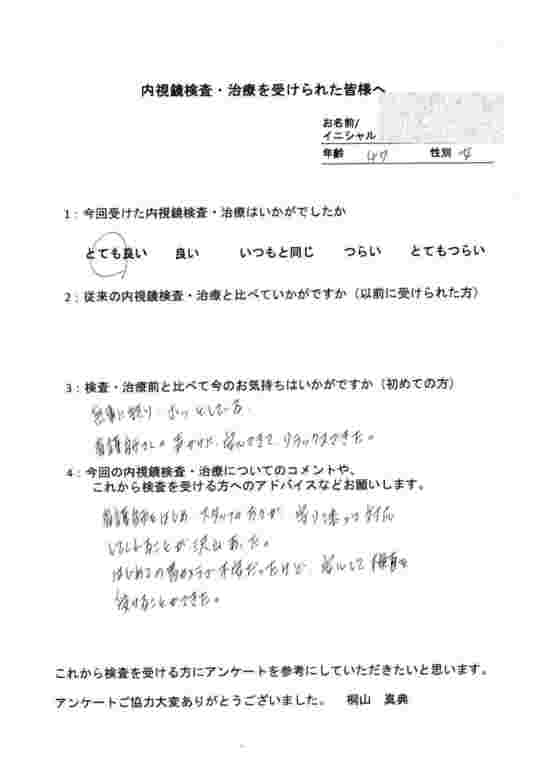 内視鏡検査・治療を受けられた皆様へ
お名前/
イニシャル
年齢 47 性別 女
1：今回受けた内視鏡検査・治療はいかがでしたか
とても良い 良い いつもと同じ つらい とてもつらい
2：従来の内視鏡検査・治療と比べていかがですか（以前に受けられた方）
3：検査・治療前と比べて今のお気持ちはいかがですか（初めての方）
無事に終り ホッとしている方、
看護師さんの声かけに、安心できて、リラックスできた。
4：今回の内視鏡検査・治療についてのコメントや、
これから検査を受ける方へのアドバイスなどお願いします。
看護師をはじめ、スタッフの方々が、寄り添って対応
してくれることが沢山あった。
はじめての胃カメラで不安だったけど、安心して検査を
受けることができた。
これから検査を受ける方にアンケートを参考にしていただきたいと思います。
アンケートご協力大変ありがとうございました。 桐山 真典